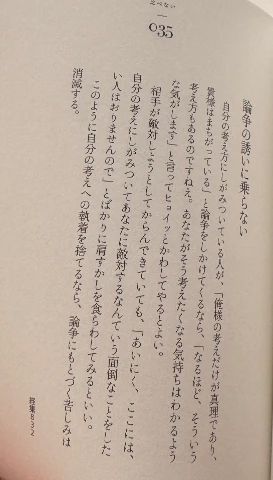 比べない
035
論争の誘いに乗らない
自分の考え方にしがみついている人が、「俺様の考えだけが真理であり、
貴様はまちがっている」と論争をしかけてくるなら、「なるほど、そういう
考え方もあるのですねえ。あなたがそう考えたくなる気持ちはわかるよう
な気がします」と言ってヒョイッとかわしてやるとよい。
相手が敵対しようとしてからんできていても、「あいにく、ここには、
自分の考えにしがみついてあなたに敵対するなんていう面倒なことをした
い人はおりませんので」とばかりに肩すかしを食らわしてみるといい。
このように自分の考えへの執着を捨てるなら、論争にもとづく苦しみは
消滅する。
経集832